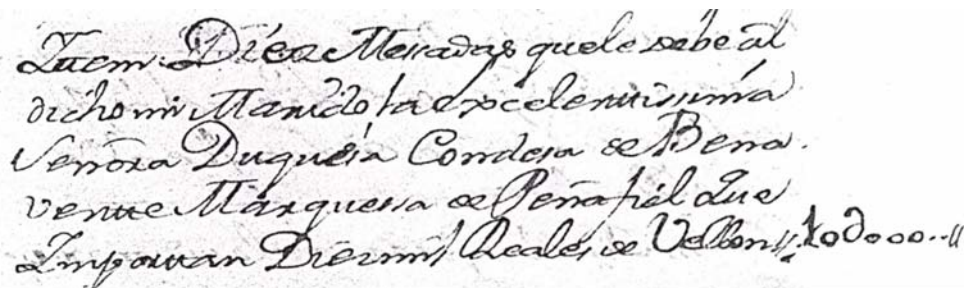 Ytem Diez Mesadas que le debe al
dicho mi Marido la excelentissima
Señora Duquesa Condesa de Bena
vente Marquesa de Peñafiel Que
Importan Diezmil Reales de Vellon 10d000..